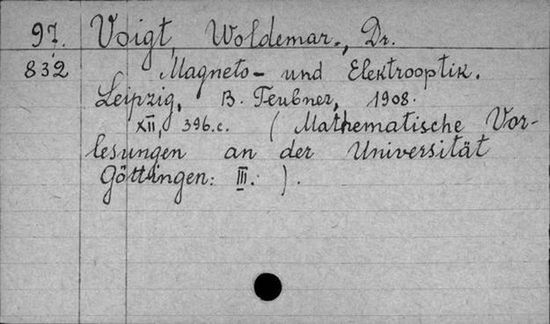 97. Voigt, Woldemar., Dr.
832 Magneto- und Elektrooptik.
Leipzig, B. Teubner, 1908.
XII, 396.c. ( Mathematische Vor-
lesungen an der Universität
Göttingen: III. ).